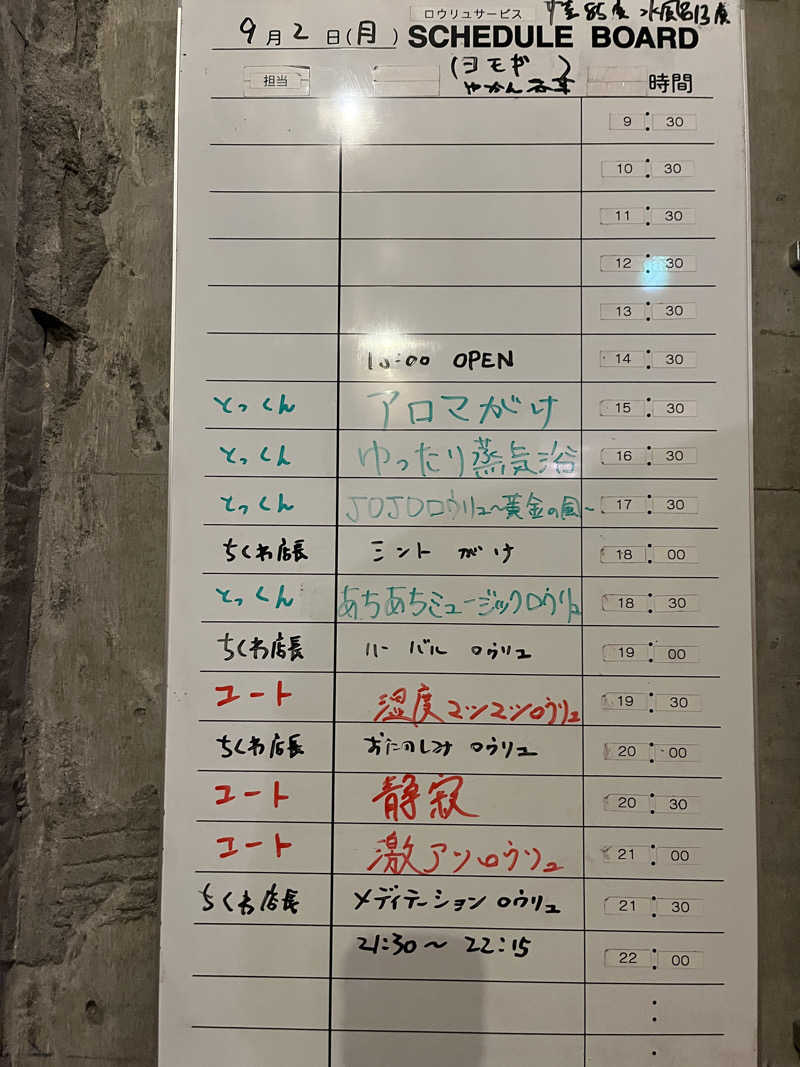 ロウリュサービス 室85度 水風呂13度
9月2日(月) SCHEDULE BOARD
担当 (ヨモギ やかん 時間
9:30
10:30
11:30
12:30
13:30
15:00 OPEN 14:30
とっくん アロマがけ 15:30
とっくん ゆったり蒸気浴 16:30
とっくん JOJOロウリュ~黄金の風~ 17:30
ちくわ店長 ミント がけ 18:00
とっくん あちあちミュージックロウリュ 18:30
ちくわ店長 ハーバル ロウリュ 19:00
コート 湿度マシマシロウリュ 19:30
ちくわ店長 おたのしみ ロウリュ 20:00
コート 静寂 20:30
コート 激アツロウリュ 21:00
ちくわ店長 メディテーション ロウリュ 21:30
21:30~22:15 22:00